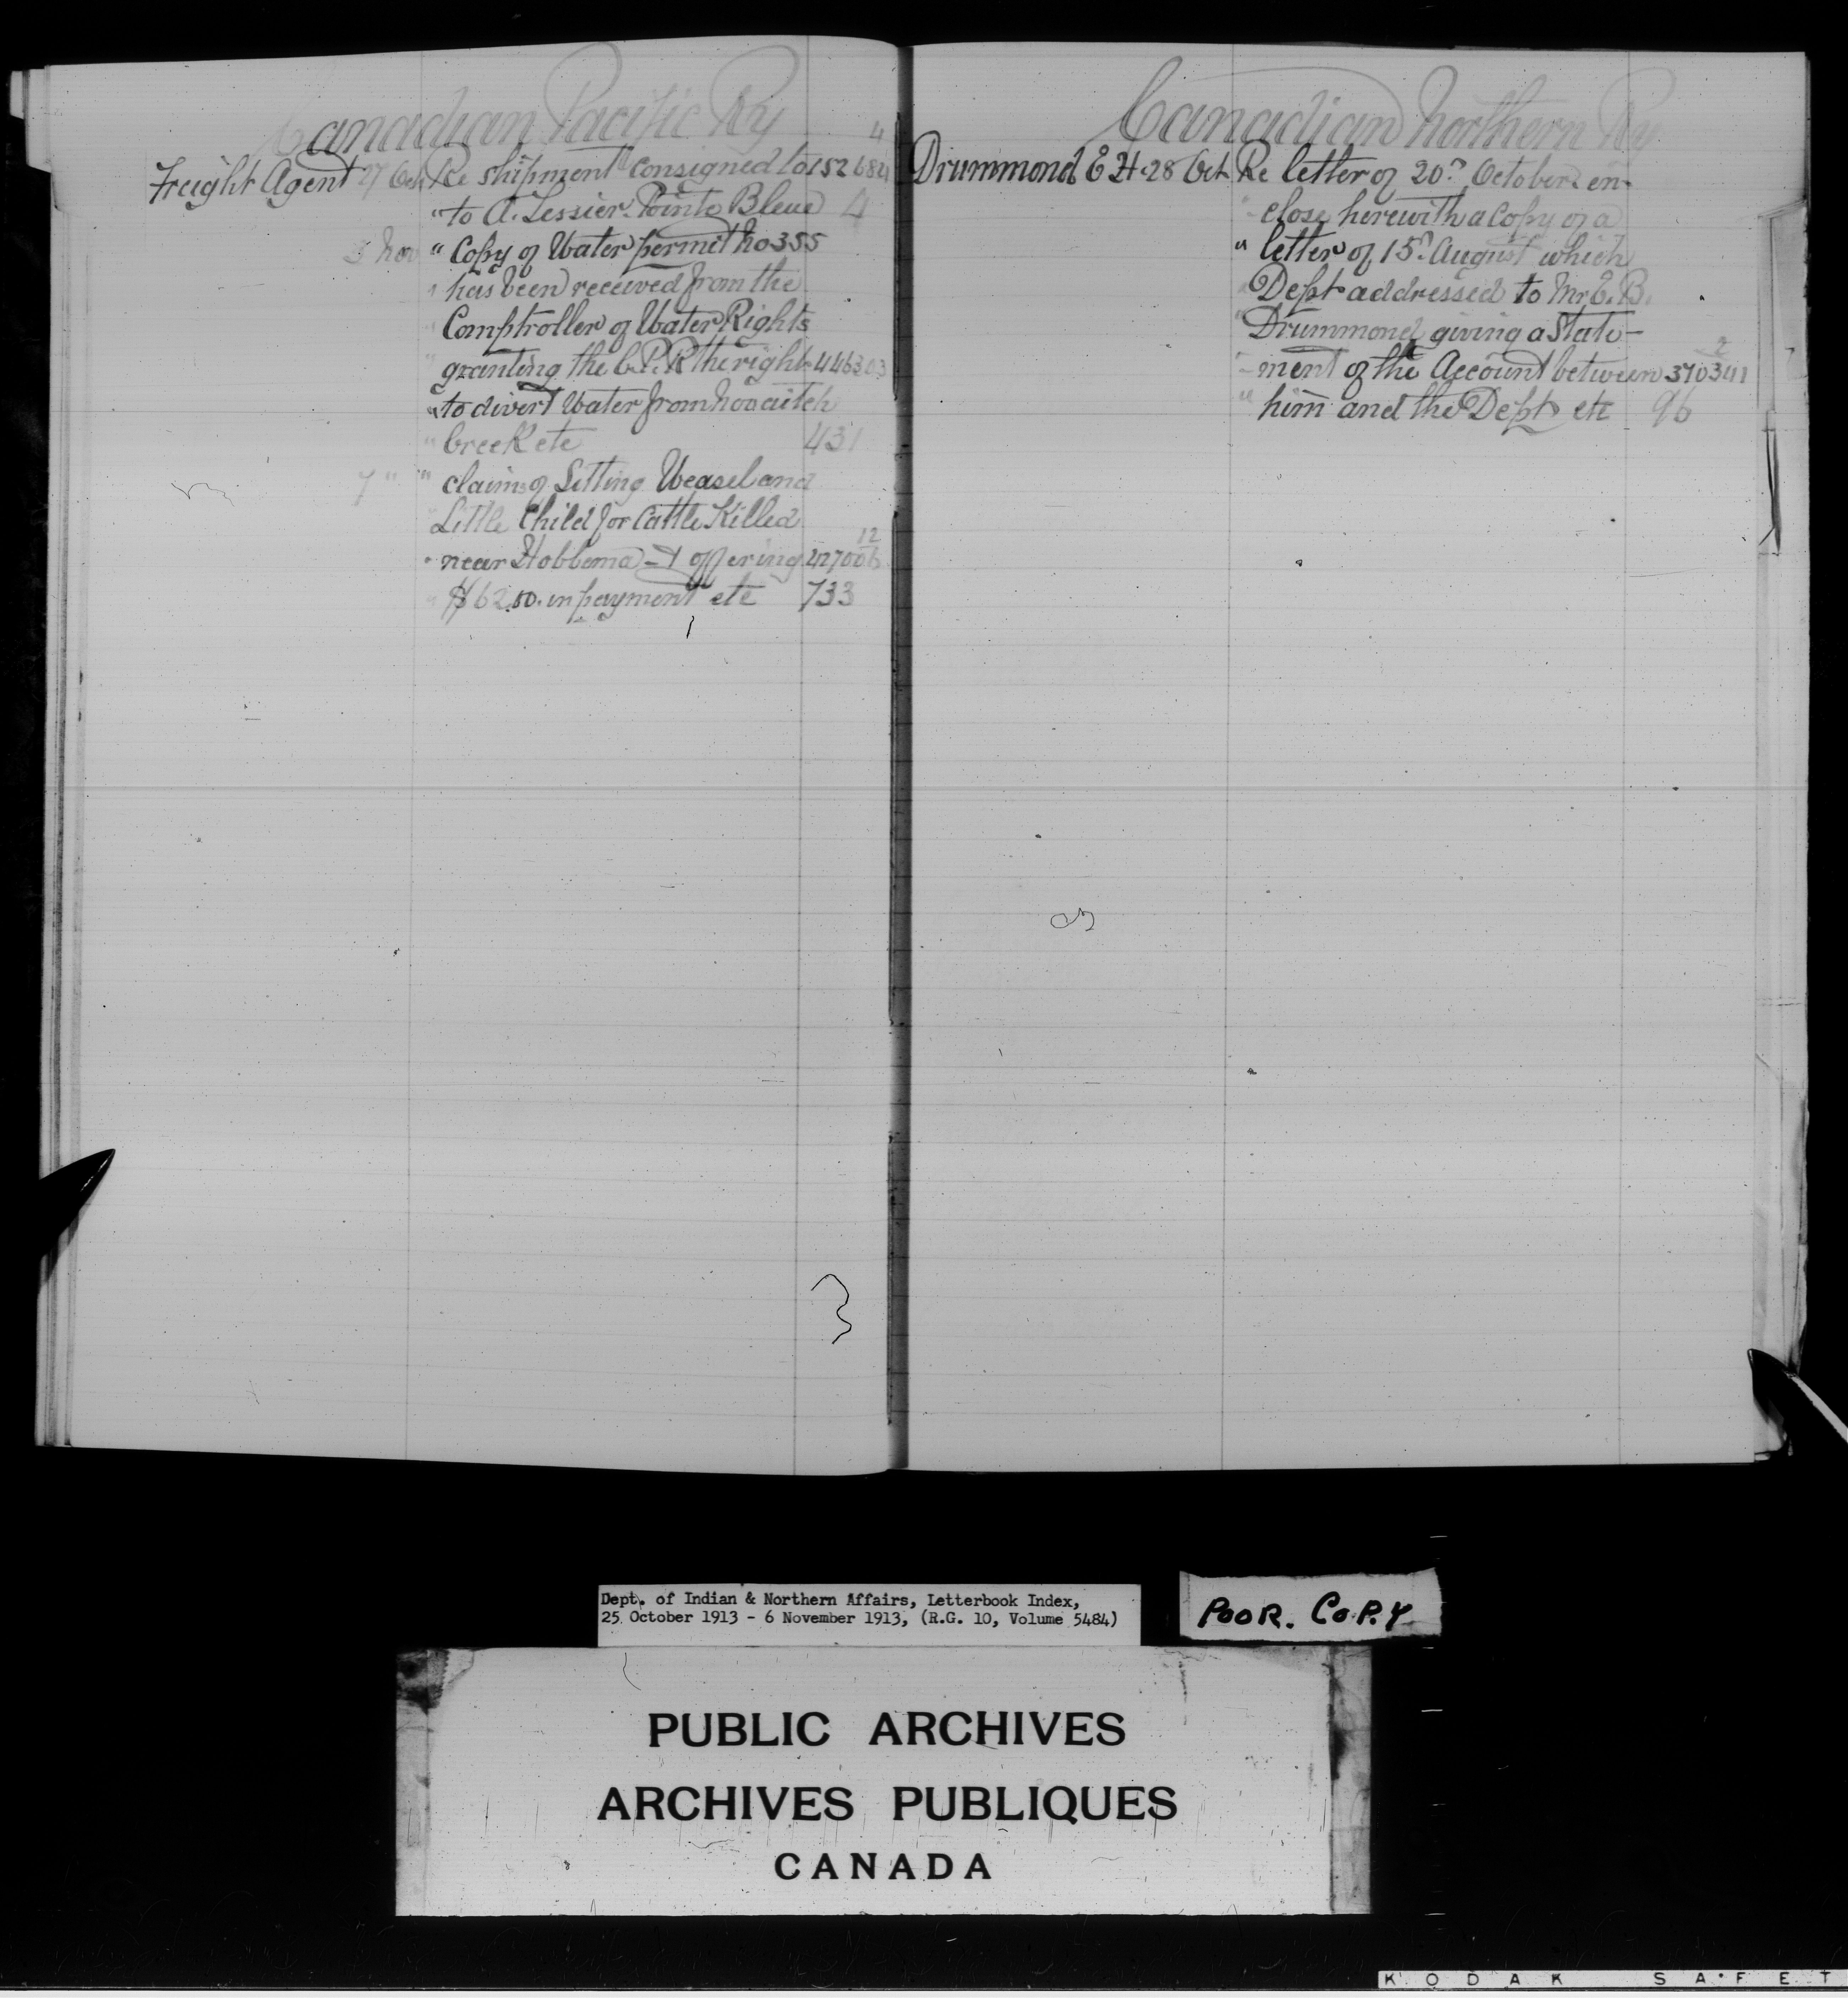 Canadian Pacific Ry
4
Freight Agent 27 Oct Re shipment consigned to 152684
" to A. Tessier Pointe Bleue 4
3 Nov " Copy of Water permit No 355
" has been received from the
" Comptroller of Water Rights
" granting the C.P.R the right 446303
" to divert Water from
" Creek etc 431
7 " " claims of Sitting Weasel and
" Little Child for Cattle Killed
12
" near Hobbema - & offering 427006
" $62.50. in payment etc 733
Canadian Northern Ry
Drummond E H 28 Oct Re letter of 20th October en-
" close herewith a Copy of a
" letter of 15th August which
" Dept addressed to Mr E. B.
" Drummond giving a State-
2
" ment of the Account between 370341
" him and the Dept etc 96
Dept. of Indian & Northern Affairs, Letterbook Index,
25 October 1913 - 6 November 1913, (R.G. 10, Volume 5484)
POOR. COPY
PUBLIC ARCHIVES
ARCHIVES PUBLIQUES
CANADA
KODAK SAFET